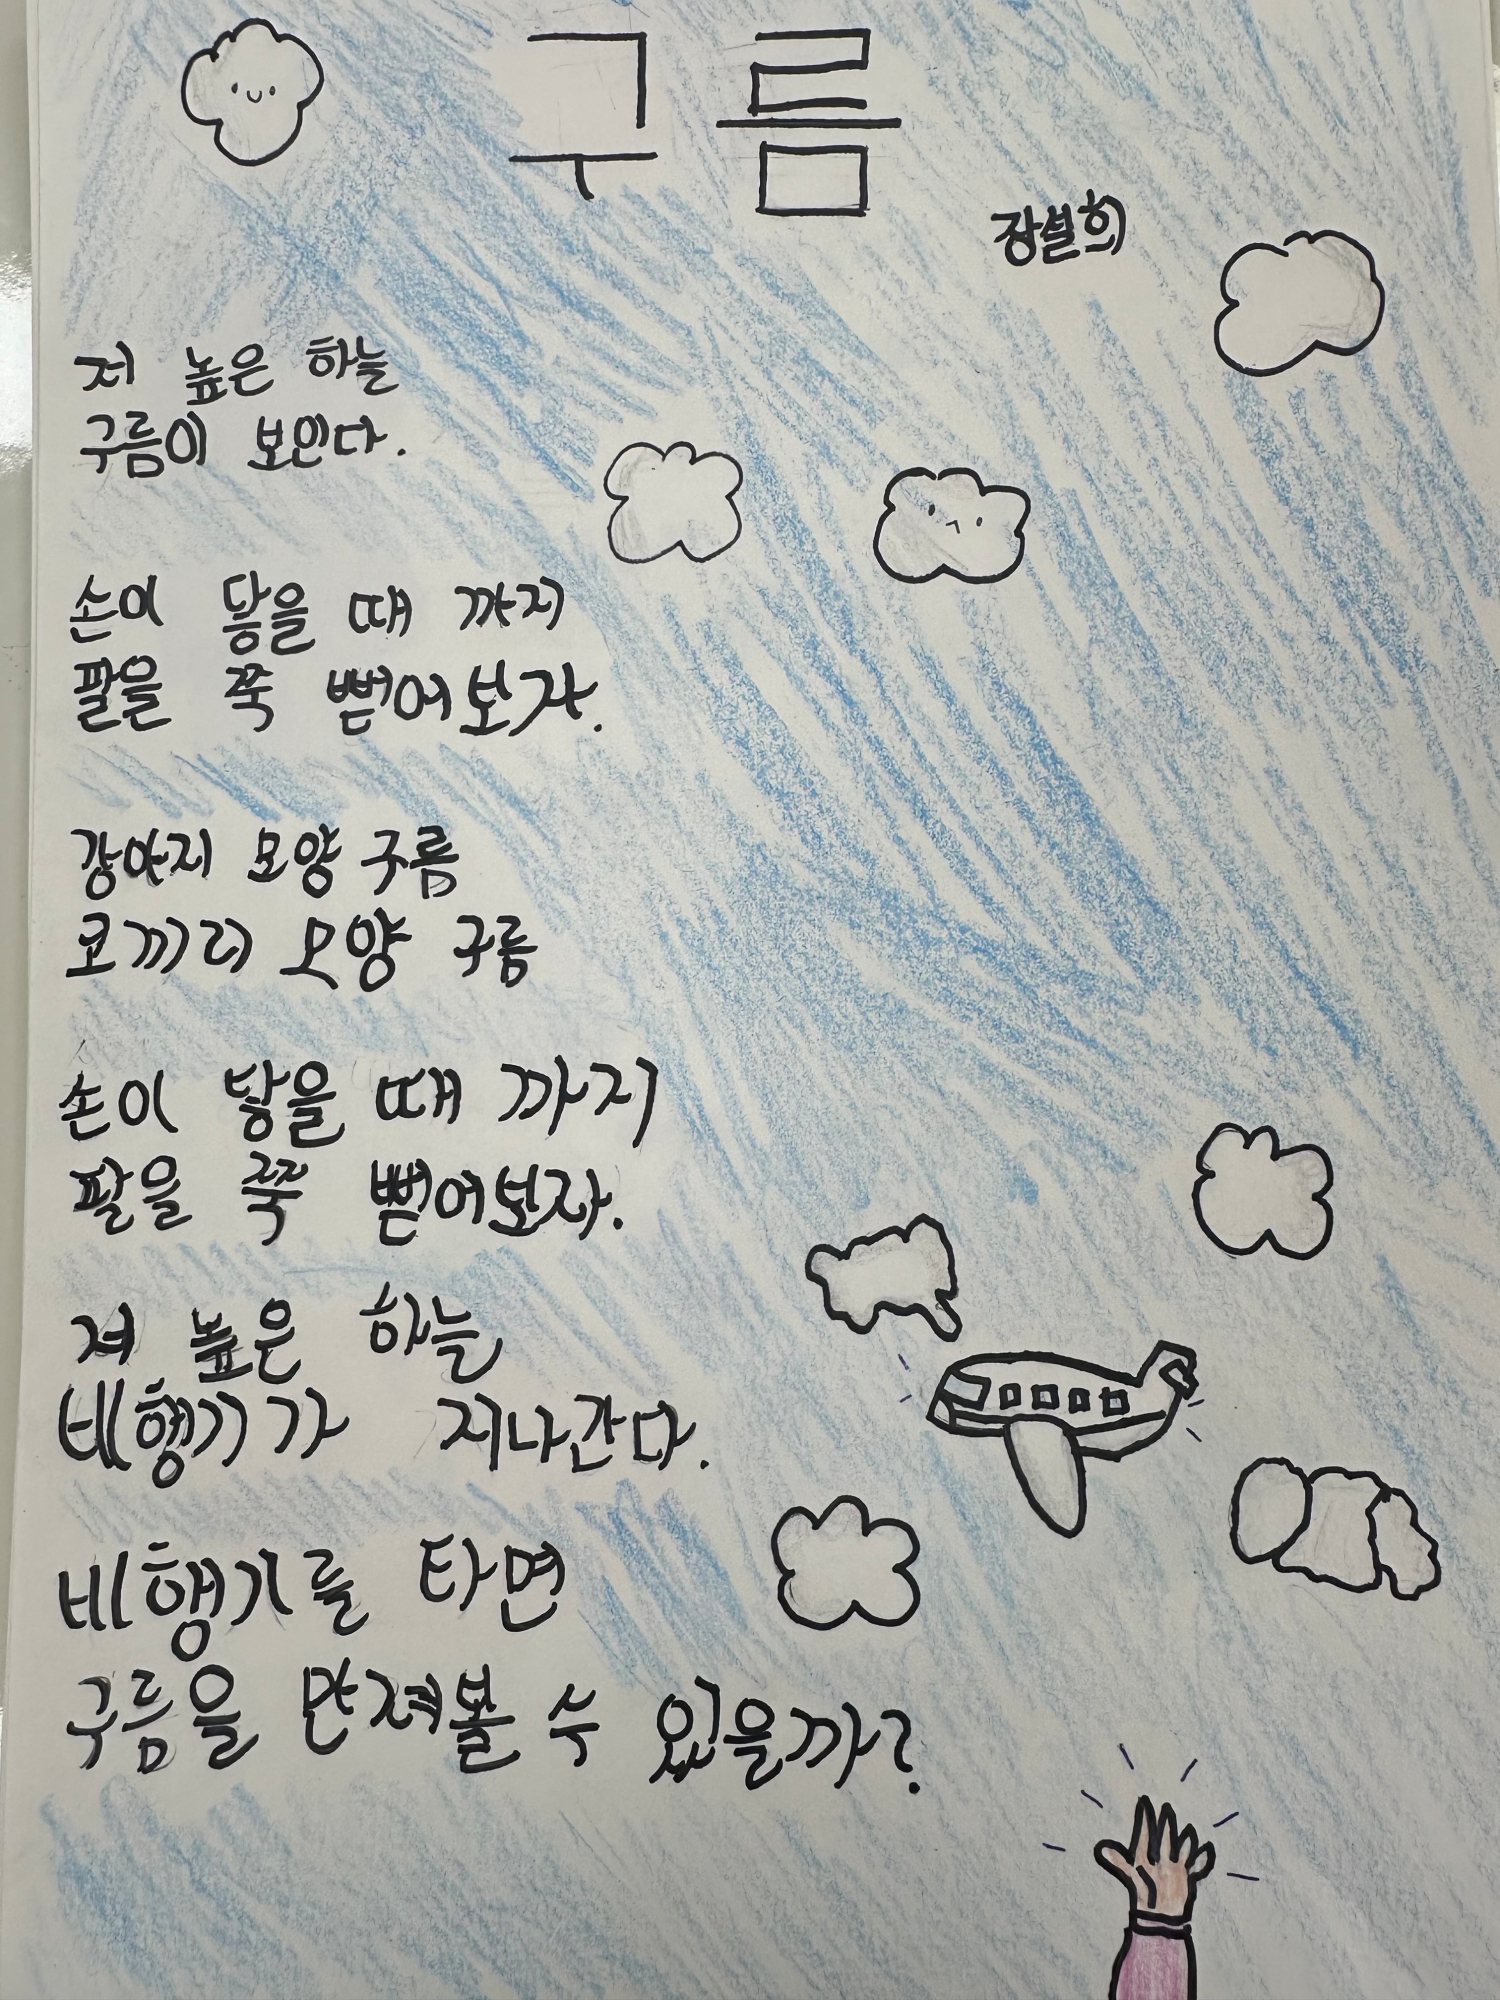 구름
장설희
저 높은 하늘
구름이 보인다.
손이 닿을 때 까지
팔을 쭉 뻗어보자.
강아지 모양 구름
코끼리 모양 구름
손이 닿을 때 까지
팔을 쭉 뻗어보자.
저 높은 하늘
비행기가 지나간다.
비행기를 타면
구름을 만져볼 수 있을까?